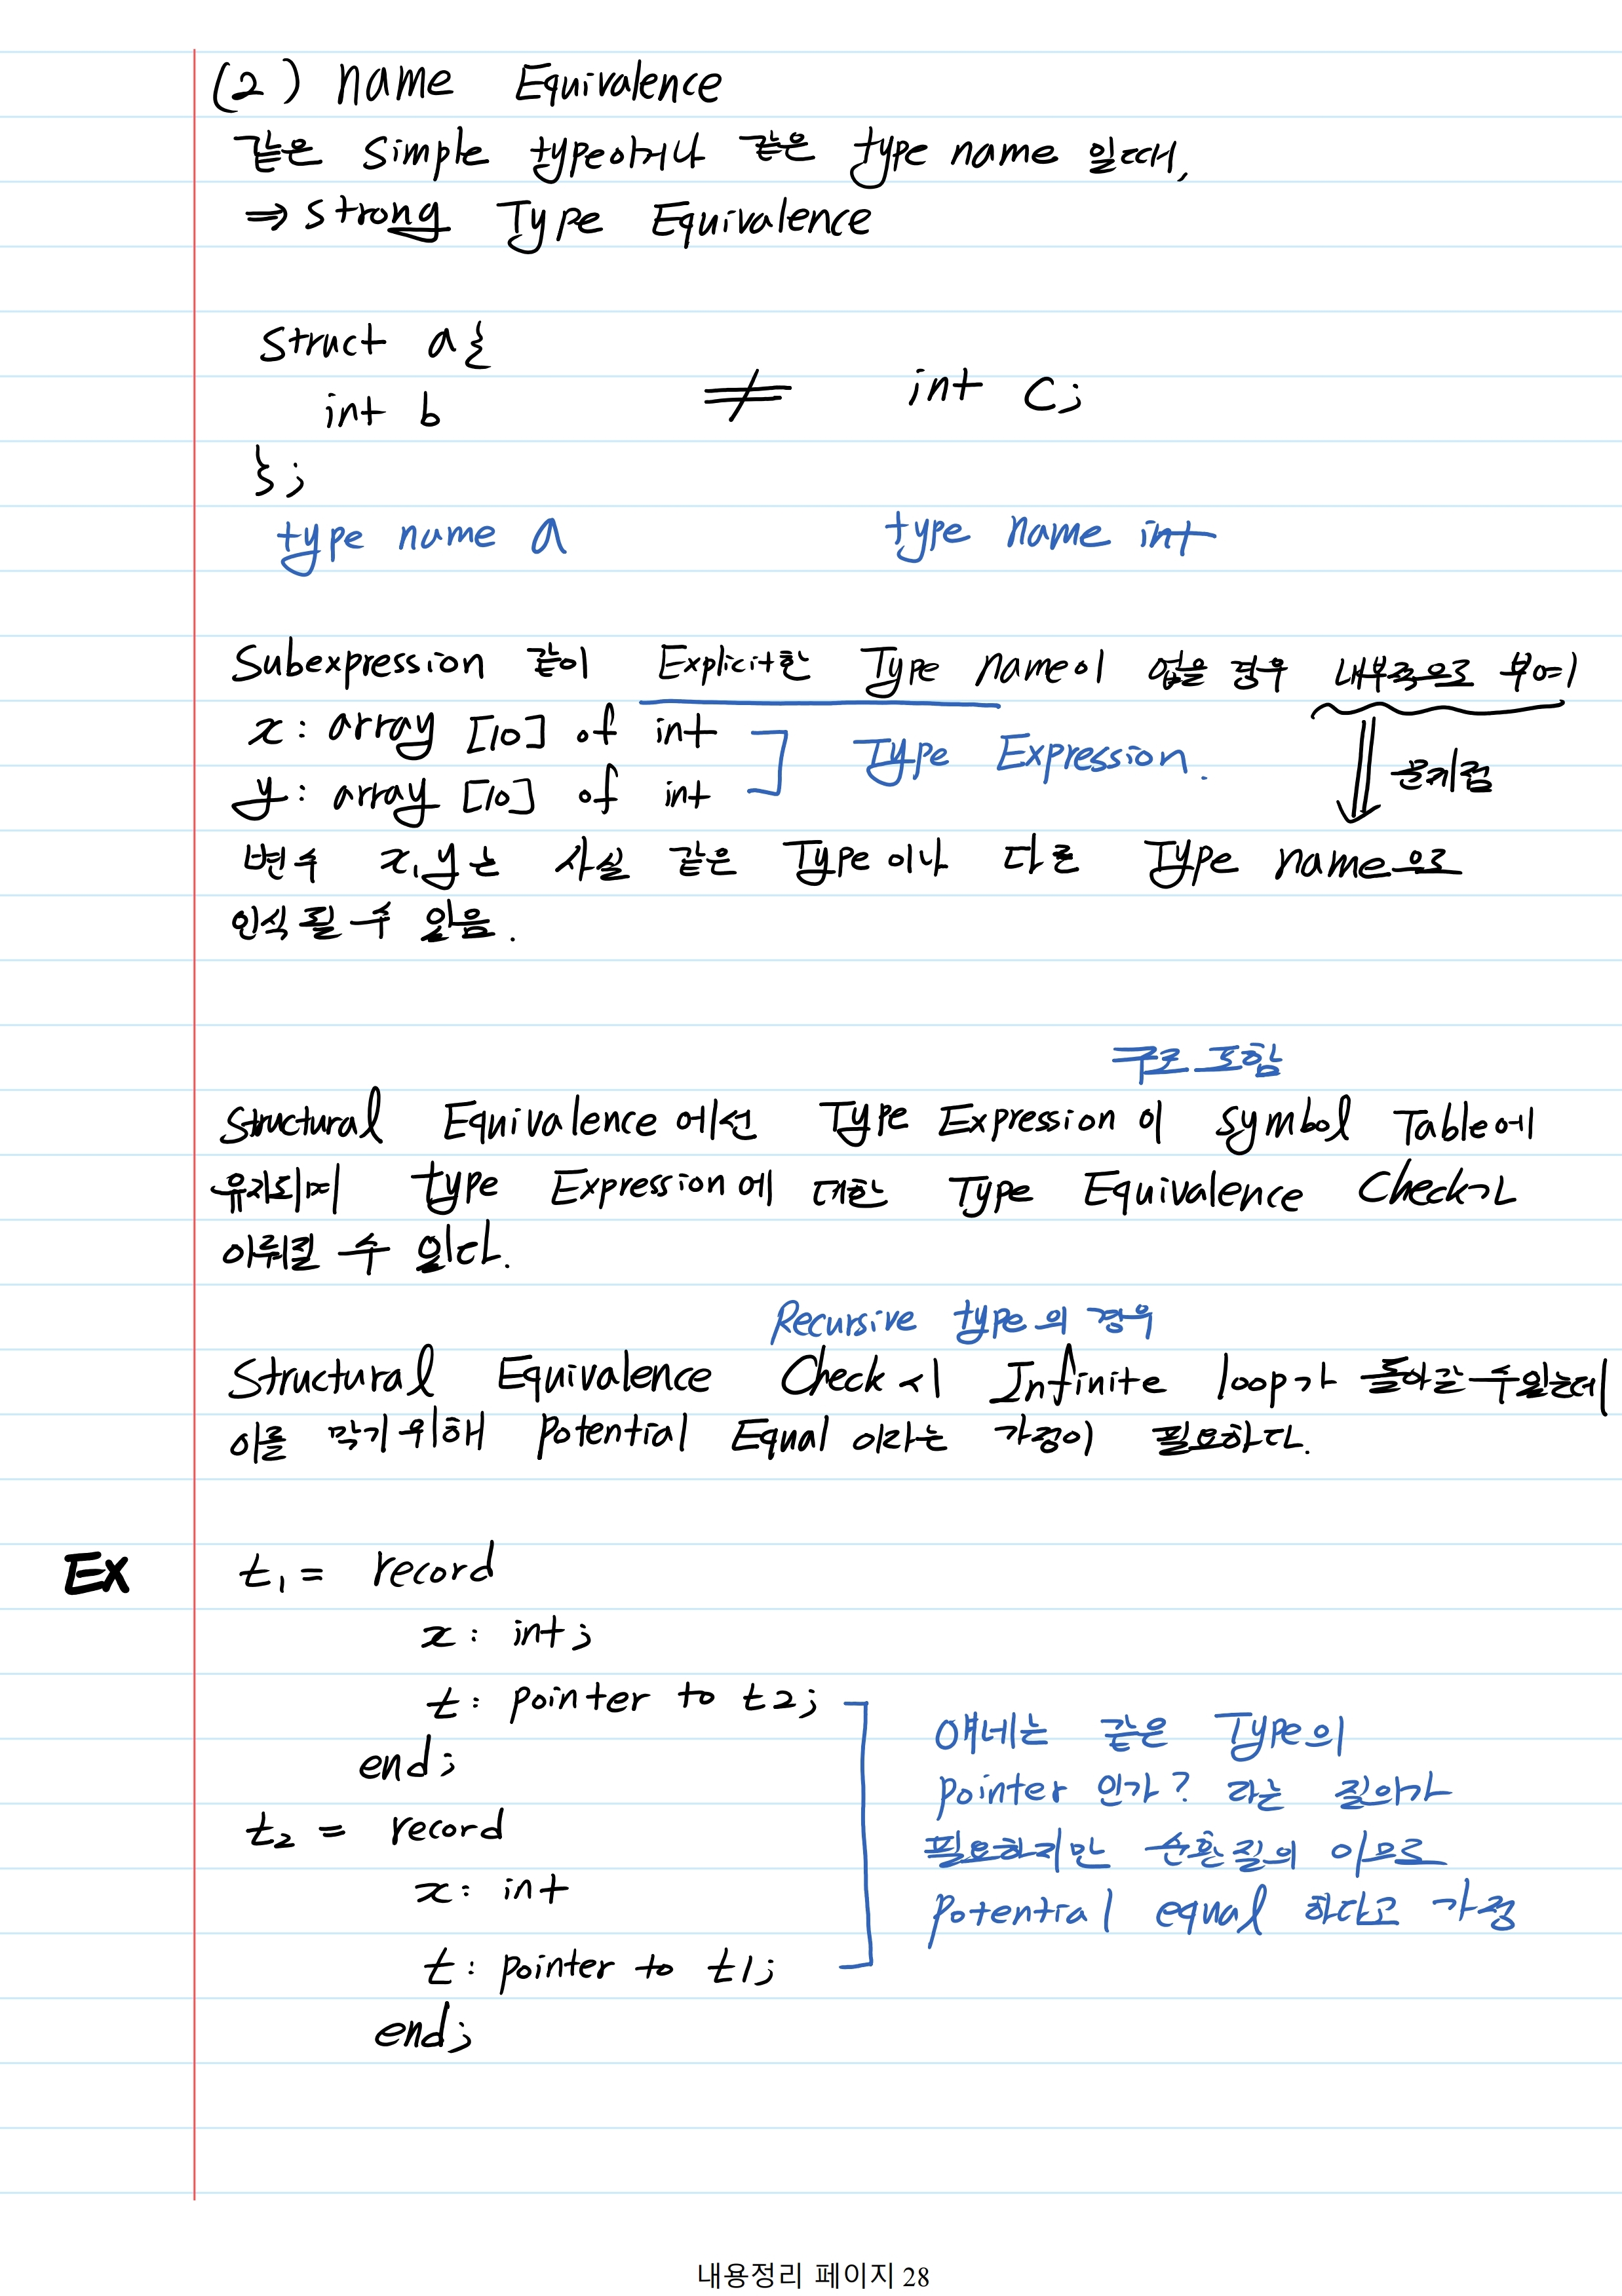 (2) Name Equivalence
같은 simple type이거나 같은 type name 일때,
⇒ Strong Type Equivalence
Struct a{
int b
};
≠
int C;
type name a
type name int
Subexpression 같이 Explicit한 Type Name이 없을 경우 내부적으로 부여
x: array [10] of int
y: array [10] of int
Type Expression.
문제점
변수 x,y는 사실 같은 Type이나 다른 Type Name으로
인식 될 수 있음.
구조 포함
Structural Equivalence 에선 Type Expression 이 Symbol Table에
유지되며 type Expression에 대한 Type Equivalence Check가
이뤄질 수 있다.
Recursive type의 경우
Structural Equivalence Check 시 Infinite loop가 돌아갈 수 있는데
이를 막기 위해 Potential Equal 이라는 가정이 필요하다.
EX
t1 = record
x: int;
t: pointer to t2;
end;
t2 = record
x: int
t: pointer to t1;
end;
얘네는 같은 Type의
pointer 인가? 라는 질의가
필요하지만 순환질의 이므로
potential equal 하다고 가정
내용정리 페이지 28